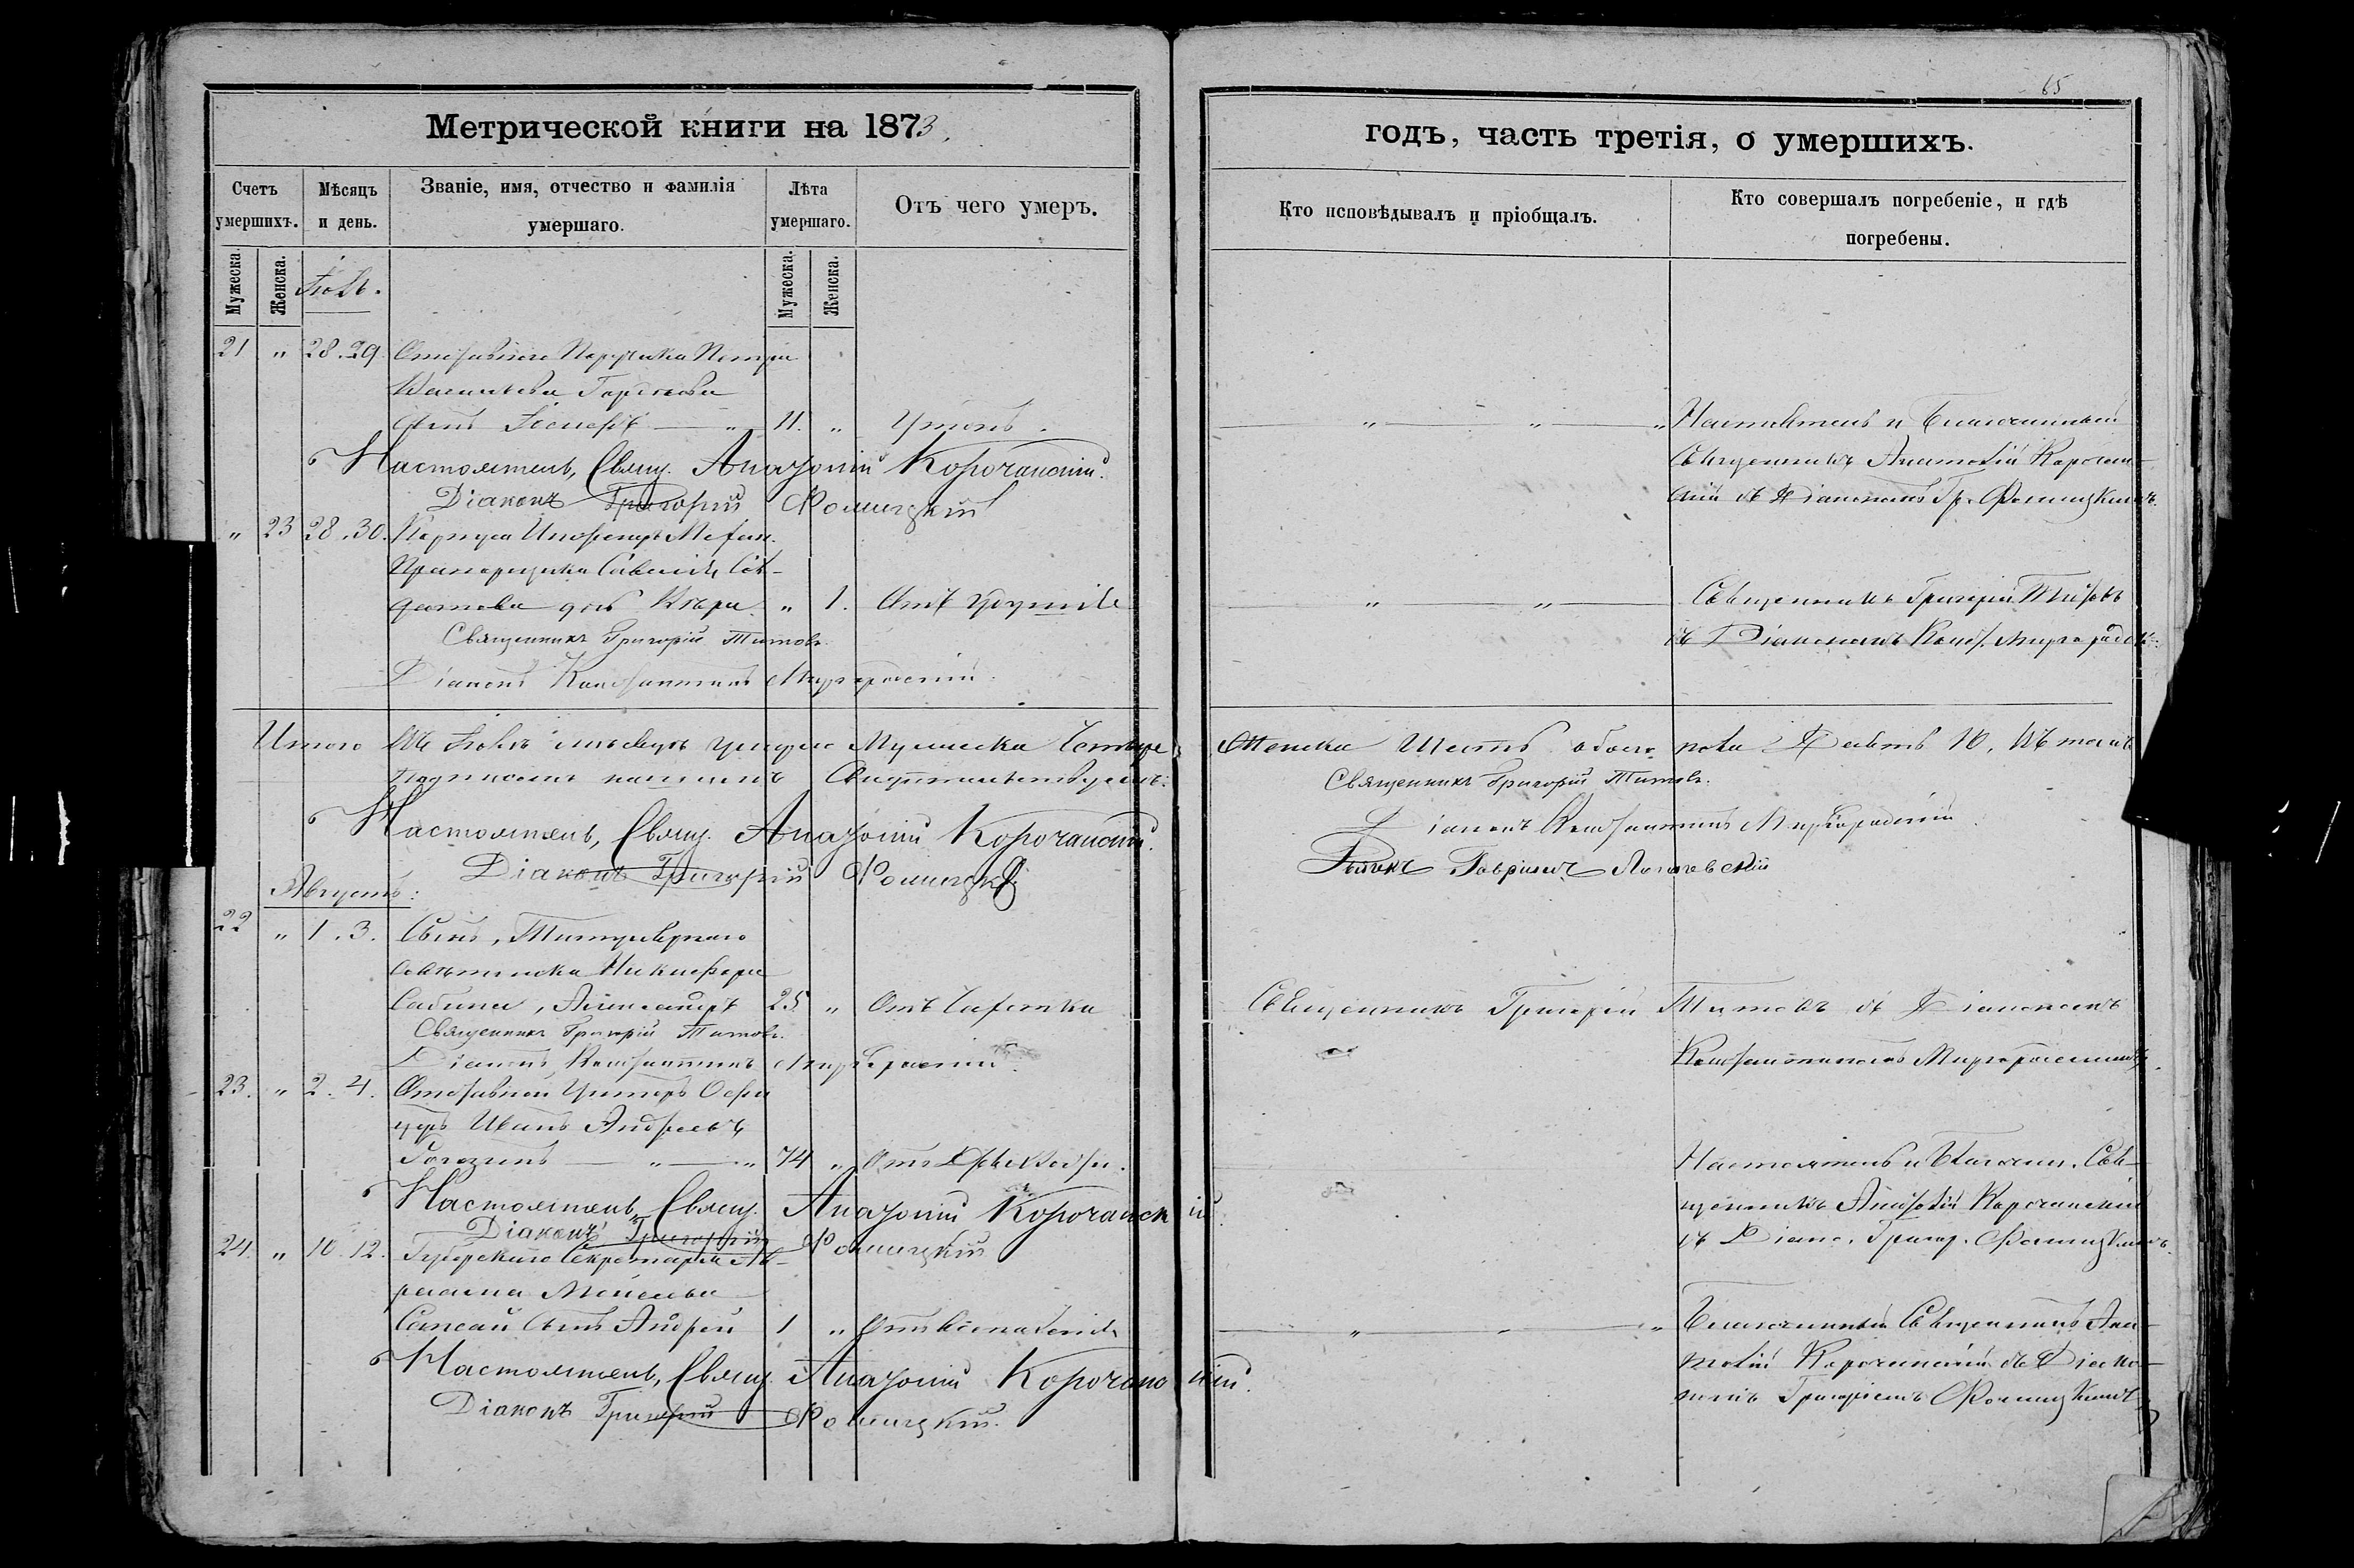 65
Метрической книги на 1873.
годъ, часть третія, о умершихъ.
Счетъ умершихъ.
Мѣсяцъ и день.
Званіе, имя, отчество и фамилія умершаго.
Лѣта умершаго.
Отъ чего умеръ.
Кто исповѣдывалъ и пріобщалъ.
Кто совершалъ погребеніе, и гдѣ погребены.
Мужеска.
Женска.
Мужеска.
Женска.
Іюль.
21 " 28.29. Отставнаго Поручика Петра
Васильева
сынъ Іосифъ " 11. " Утонъ.
" " " Настоятель и Благочинный
Священникъ Анатолій Корочан-
скій съ Діакономъ Гр. Фомицкимъ.
Настоятель, Свящ. Анатолій Корочанскій.
Діаконъ Григорій Фомицкій
" 23 28.30. Корпуса Инженеръ Межев.
Прапорщика
дочь Вѣра. " 1. Отъ
" " Священникъ Григорій Титовъ
съ Діакономъ Конст. Миргородск:
Священникъ Григорій Титовъ.
Діаконъ Константинъ Миргородскій.
Итого въ Іюлѣ мѣсяцѣ умерло Мужеска Четыре, Женска Шесть обоего пола Десять 10, въ томъ
подписомъ нашимъ Свидѣтельствуемъ:
Настоятель, Свящ. Анатолій Корочанскій.
Діаконъ Григорій Фомицкій
Священникъ Григорій Титовъ.
Діаконъ Константинъ Миргородскій
Гавріилъ
Августъ:
22 " 1.3. Сынъ, Титулярнаго
Совѣтника Никифора
Савина, Александръ 25 " Отъ Чахотки
Священникъ Григорій Титовъ съ Діакономъ
Константиномъ Миргородскимъ.
Священникъ Григорій Титовъ.
Діаконъ Константинъ Миргородскій.
23. " 2.4. Отставной Унтеръ Офи-
церъ Иванъ Андреевъ
" " 74 " Отъ
Настоятель и Благочин. Свя-
щенникъ Анатолій Корочанскій
съ Діако. Григор. Фомицкимъ.
Настоятель, Свящ. Анатолій Корочанскій.
Діаконъ Григорій Фомицкій
24. " 10.12. Губернскаго Секретаря Ав-
раама
сынъ Андрей 1 " Отъ
" " Благочинный Священникъ Ана-
толій Корочанскій съ Діако-
номъ Григоріемъ Фомицкимъ
Настоятель, Свящ. Анатолій Корочанскій.
Діаконъ Григорій Фомицкій.